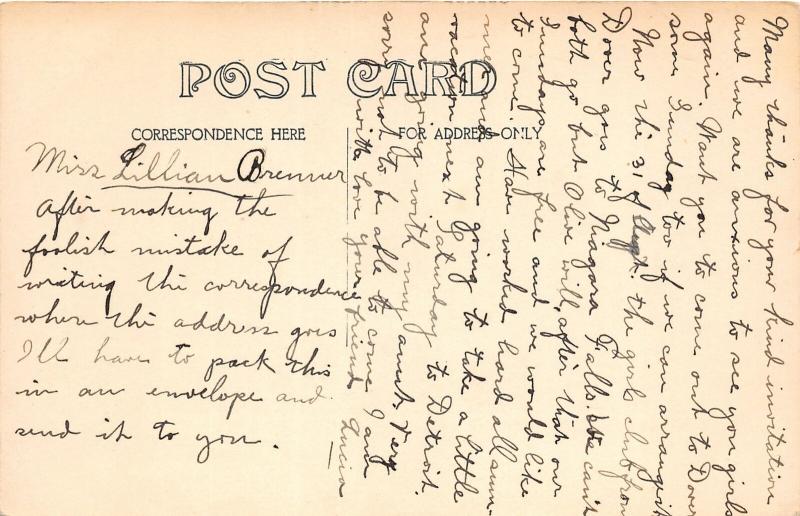 POST CARD
CORRESPONDENCE HERE
FOR ADDRESS ONLY
Miss Lillian Brenner
After making the
foolish mistake of
writing the correspondence
where the address goes
I'll have to pack this
in an envelope and
send it to you.
Many thanks for your kind invitation
and we are anxious to see you girls
again. Want you to come out to Dover
some Sunday too if we can arrange it
Now the 31 of Aug. the girls club from
Dover goes to Niagara Falls. We can't
both go but Olive will, after that our
Sundays are free and we would like
to come. Have worked hard all sum-
mer and am going to take a little
vacation next Saturday to Detroit.
am going with my aunt. Very
sorry not to be able to come. I am
with love your friend Lucia